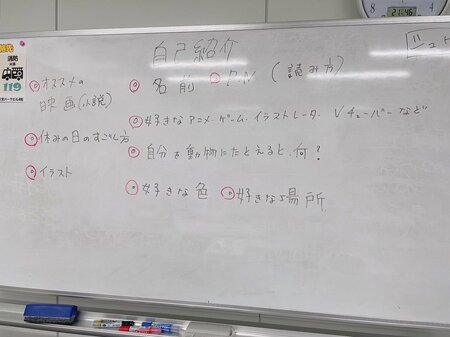 自己紹介
◎名前 ◎P.N (読み方)
◎好きなアニメ・ゲーム・イラストレータ・Vチューバーなど
◎自分を動物にたとえると、何?
◎好きな色 ◎好きな場所
◎オススメの
映画(小説)
◎休みの日のすごし方
◎イラスト
消防
119